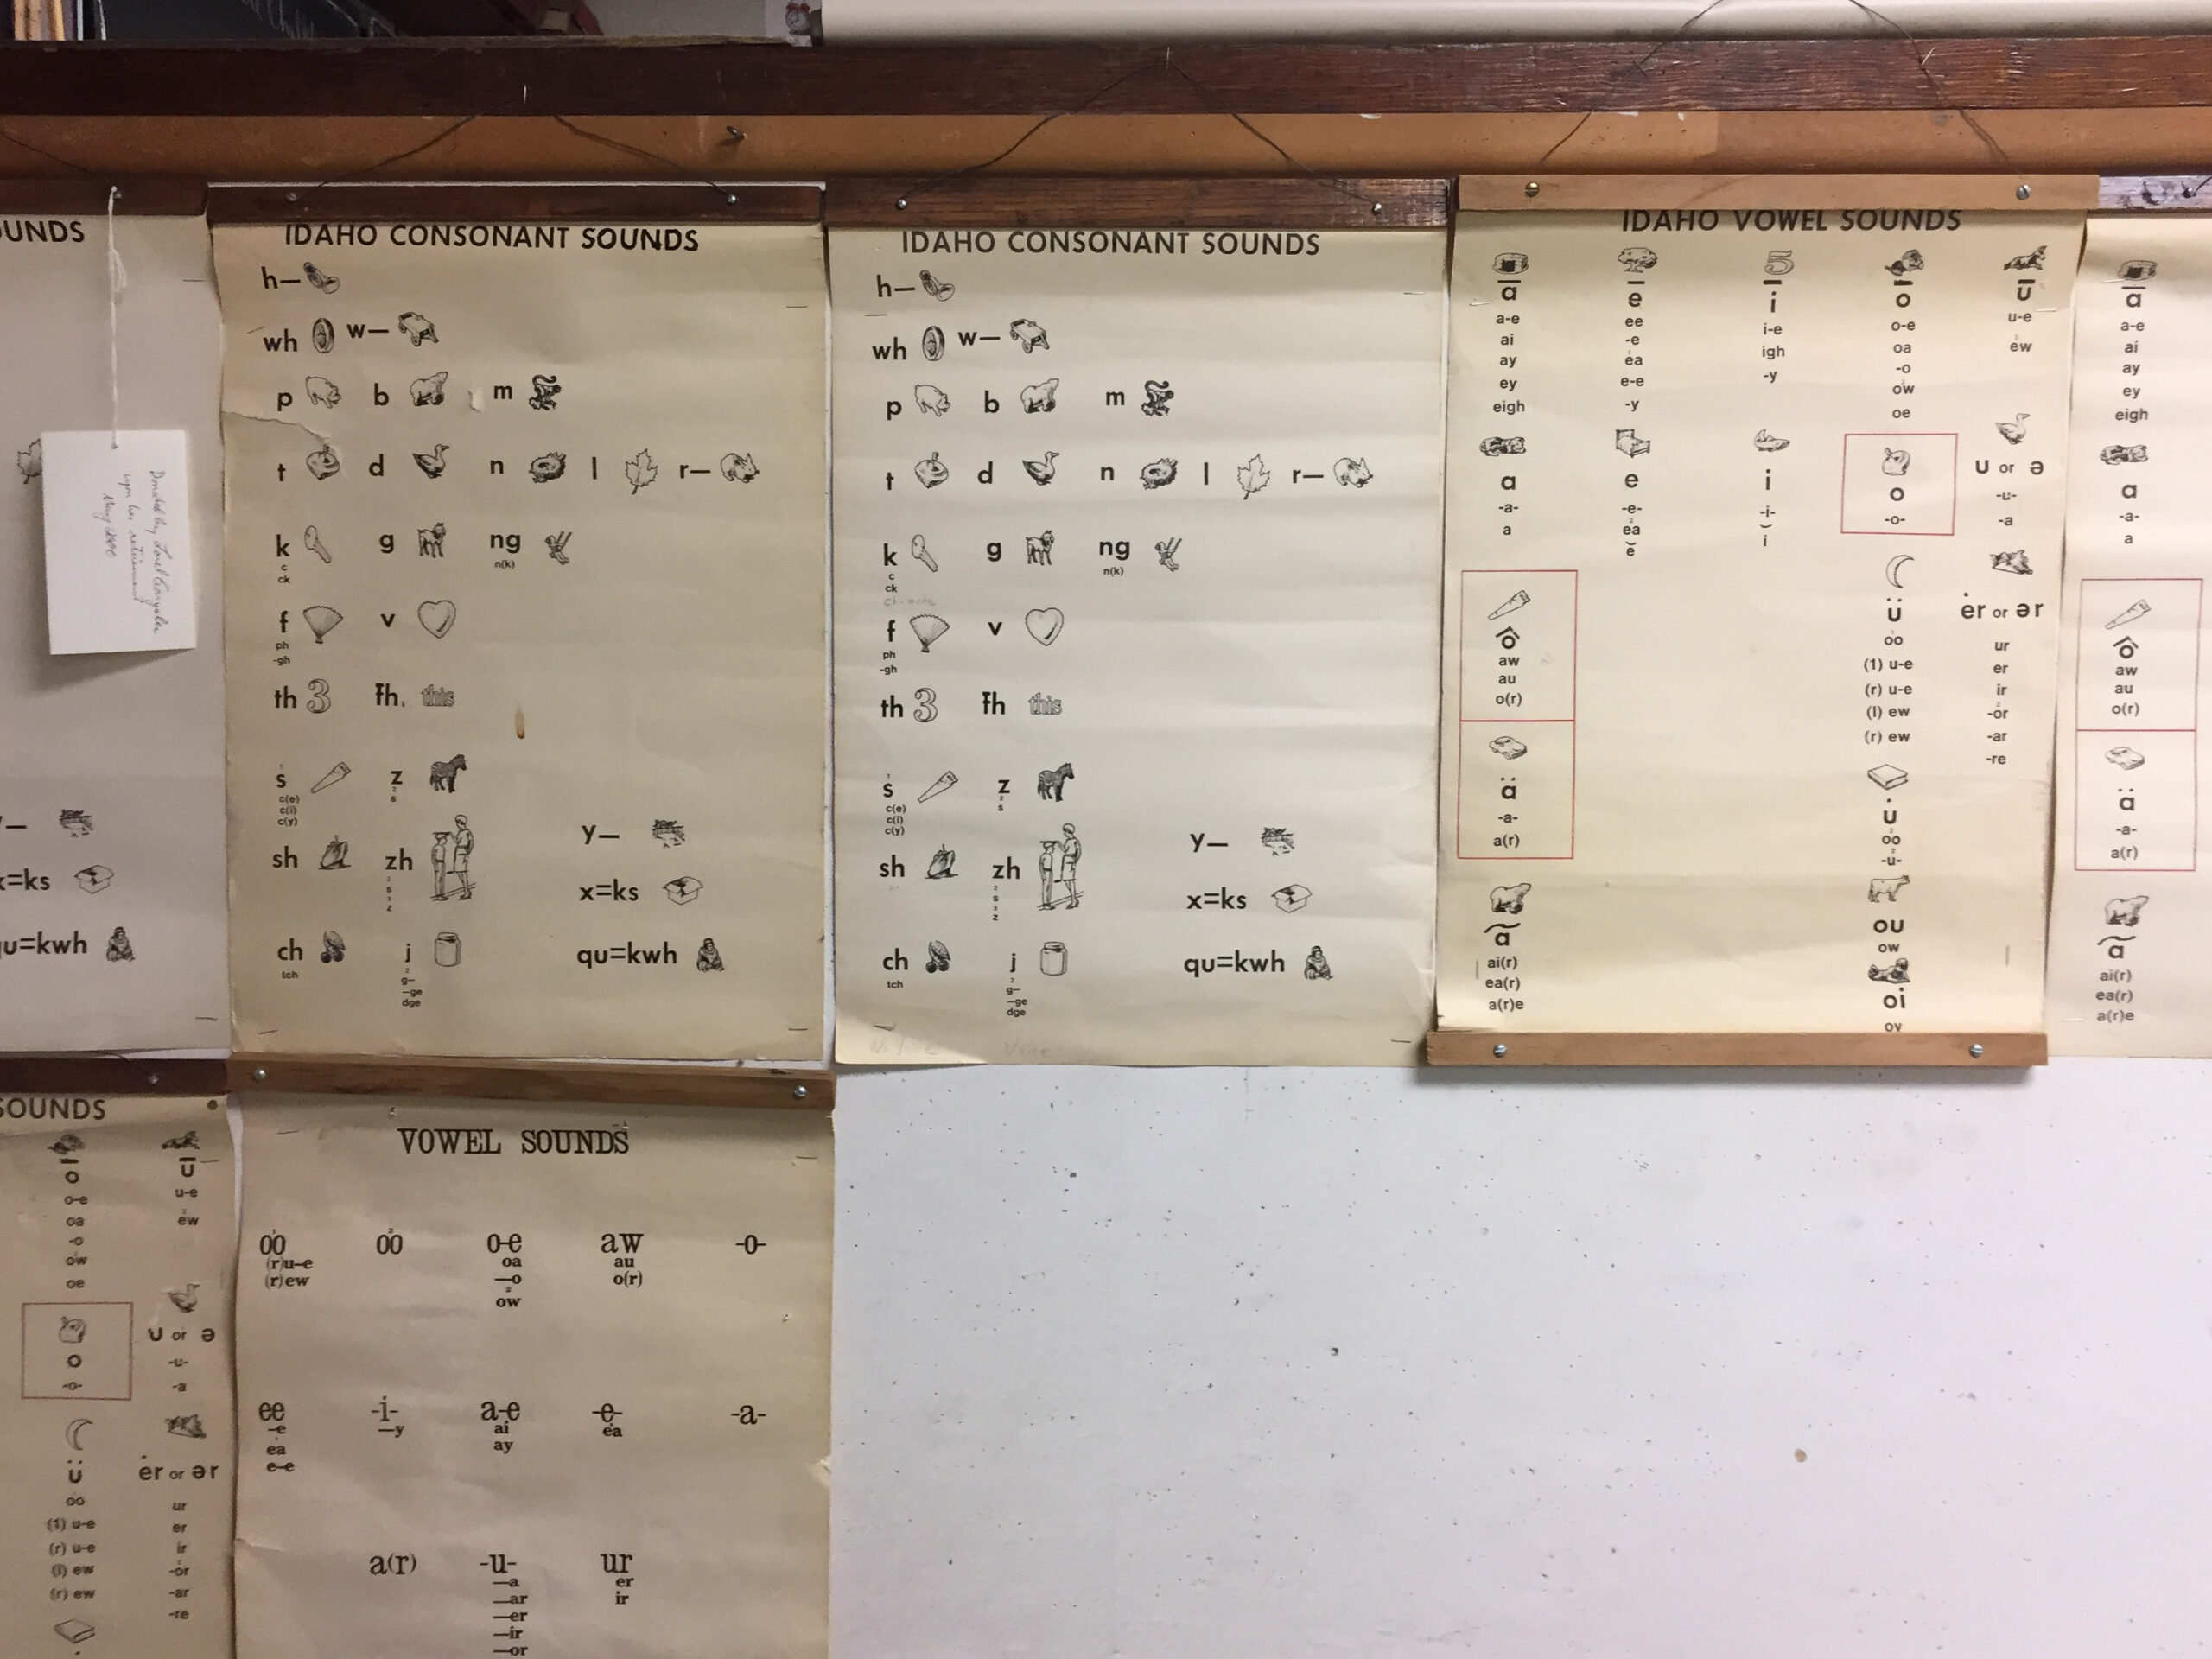 OUNDS
x=ks
qu=kwh
May
IDAHO CONSONANT SOUNDS
h—
wh w—
p b m
t d n l r—
k g ng
c n(k)
ck
f v
ph
-gh
th 3 th this
1
s z
c(e) 2
c(i) s
c(y)
sh zh y—
2
s
3
z
x=ks
ch j qu=kwh
tch 2
g—
—ge
dge
IDAHO CONSONANT SOUNDS
h—
wh w—
p b m
t d n l r—
k g ng
c n(k)
ck
f v
ph
-gh
th 3 th this
1
s z
c(e) 2
c(i) s
c(y)
sh zh y—
2
s
3
z
x=ks
ch j qu=kwh
tch 2
g—
—ge
dge
Voice
IDAHO VOWEL SOUNDS
5
ā ē ī ō ū
a-e ee i-e o-e u-e
ai -e igh oa ew
ay ea -y -o
ey e-e ow
eigh -y oe
a e i o u or ə
-a- -e- -i- -o- -u-
a ea ĭ -a
ĕ
ô
aw
au
o(r)
ü ėr or ər
oo ur
(1) u-e er
(r) u-e ir
(l) ew -or
(r) ew -ar
-re
ä
-a-
a(r)
u̇
oo
-u-
ã
ai(r)
ea(r)
a(r)e
ou
ow
oi
oy
ā
a-e
ai
ay
ey
eigh
a
-a-
a
ô
aw
au
o(r)
ä
-a-
a(r)
ã
ai(r)
ea(r)
a(r)e
SOUNDS
ō ū
o-e u-e
oa ew
-o
ow
oe
o u or ə
-o- -u-
-a
ü ėr or ər
oo ur
(1) u-e er
(r) u-e ir
(l) ew -or
(r) ew -ar
-re
VOWEL SOUNDS
oo oo o-e aw -o-
(r)u-e oa au
(r)ew —o o(r)
ow
ee -i- a-e -e- -a-
-e —y ai ea
ea ay
e-e
a(r) -u- ur
—a er
—ar ir
—er
—ir
—or